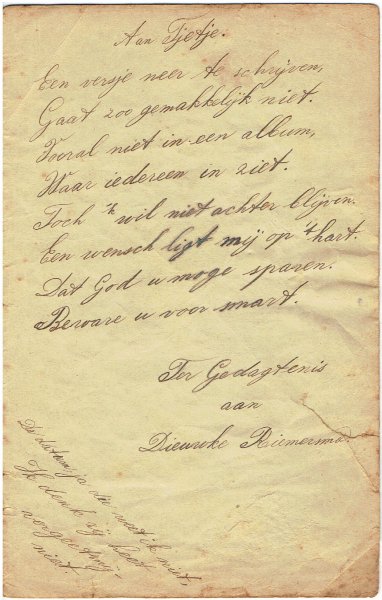 Aan Tjetje.
Een versje neer te schrijven,
Gaat zoo gemakkelijk niet.
Vooral niet in een album,
Waar iedereen in ziet.
Toch 'k wil niet achter blijven.
Een wensch ligt mij op 't hart.
Dat God u moge sparen.
Beware u voor smart.
Ter Gedagtenis
aan
Dieuwke Riemersma.
De datum ja die weet ik niet,
Ik denk zij heet
vergeetmij-
niet.